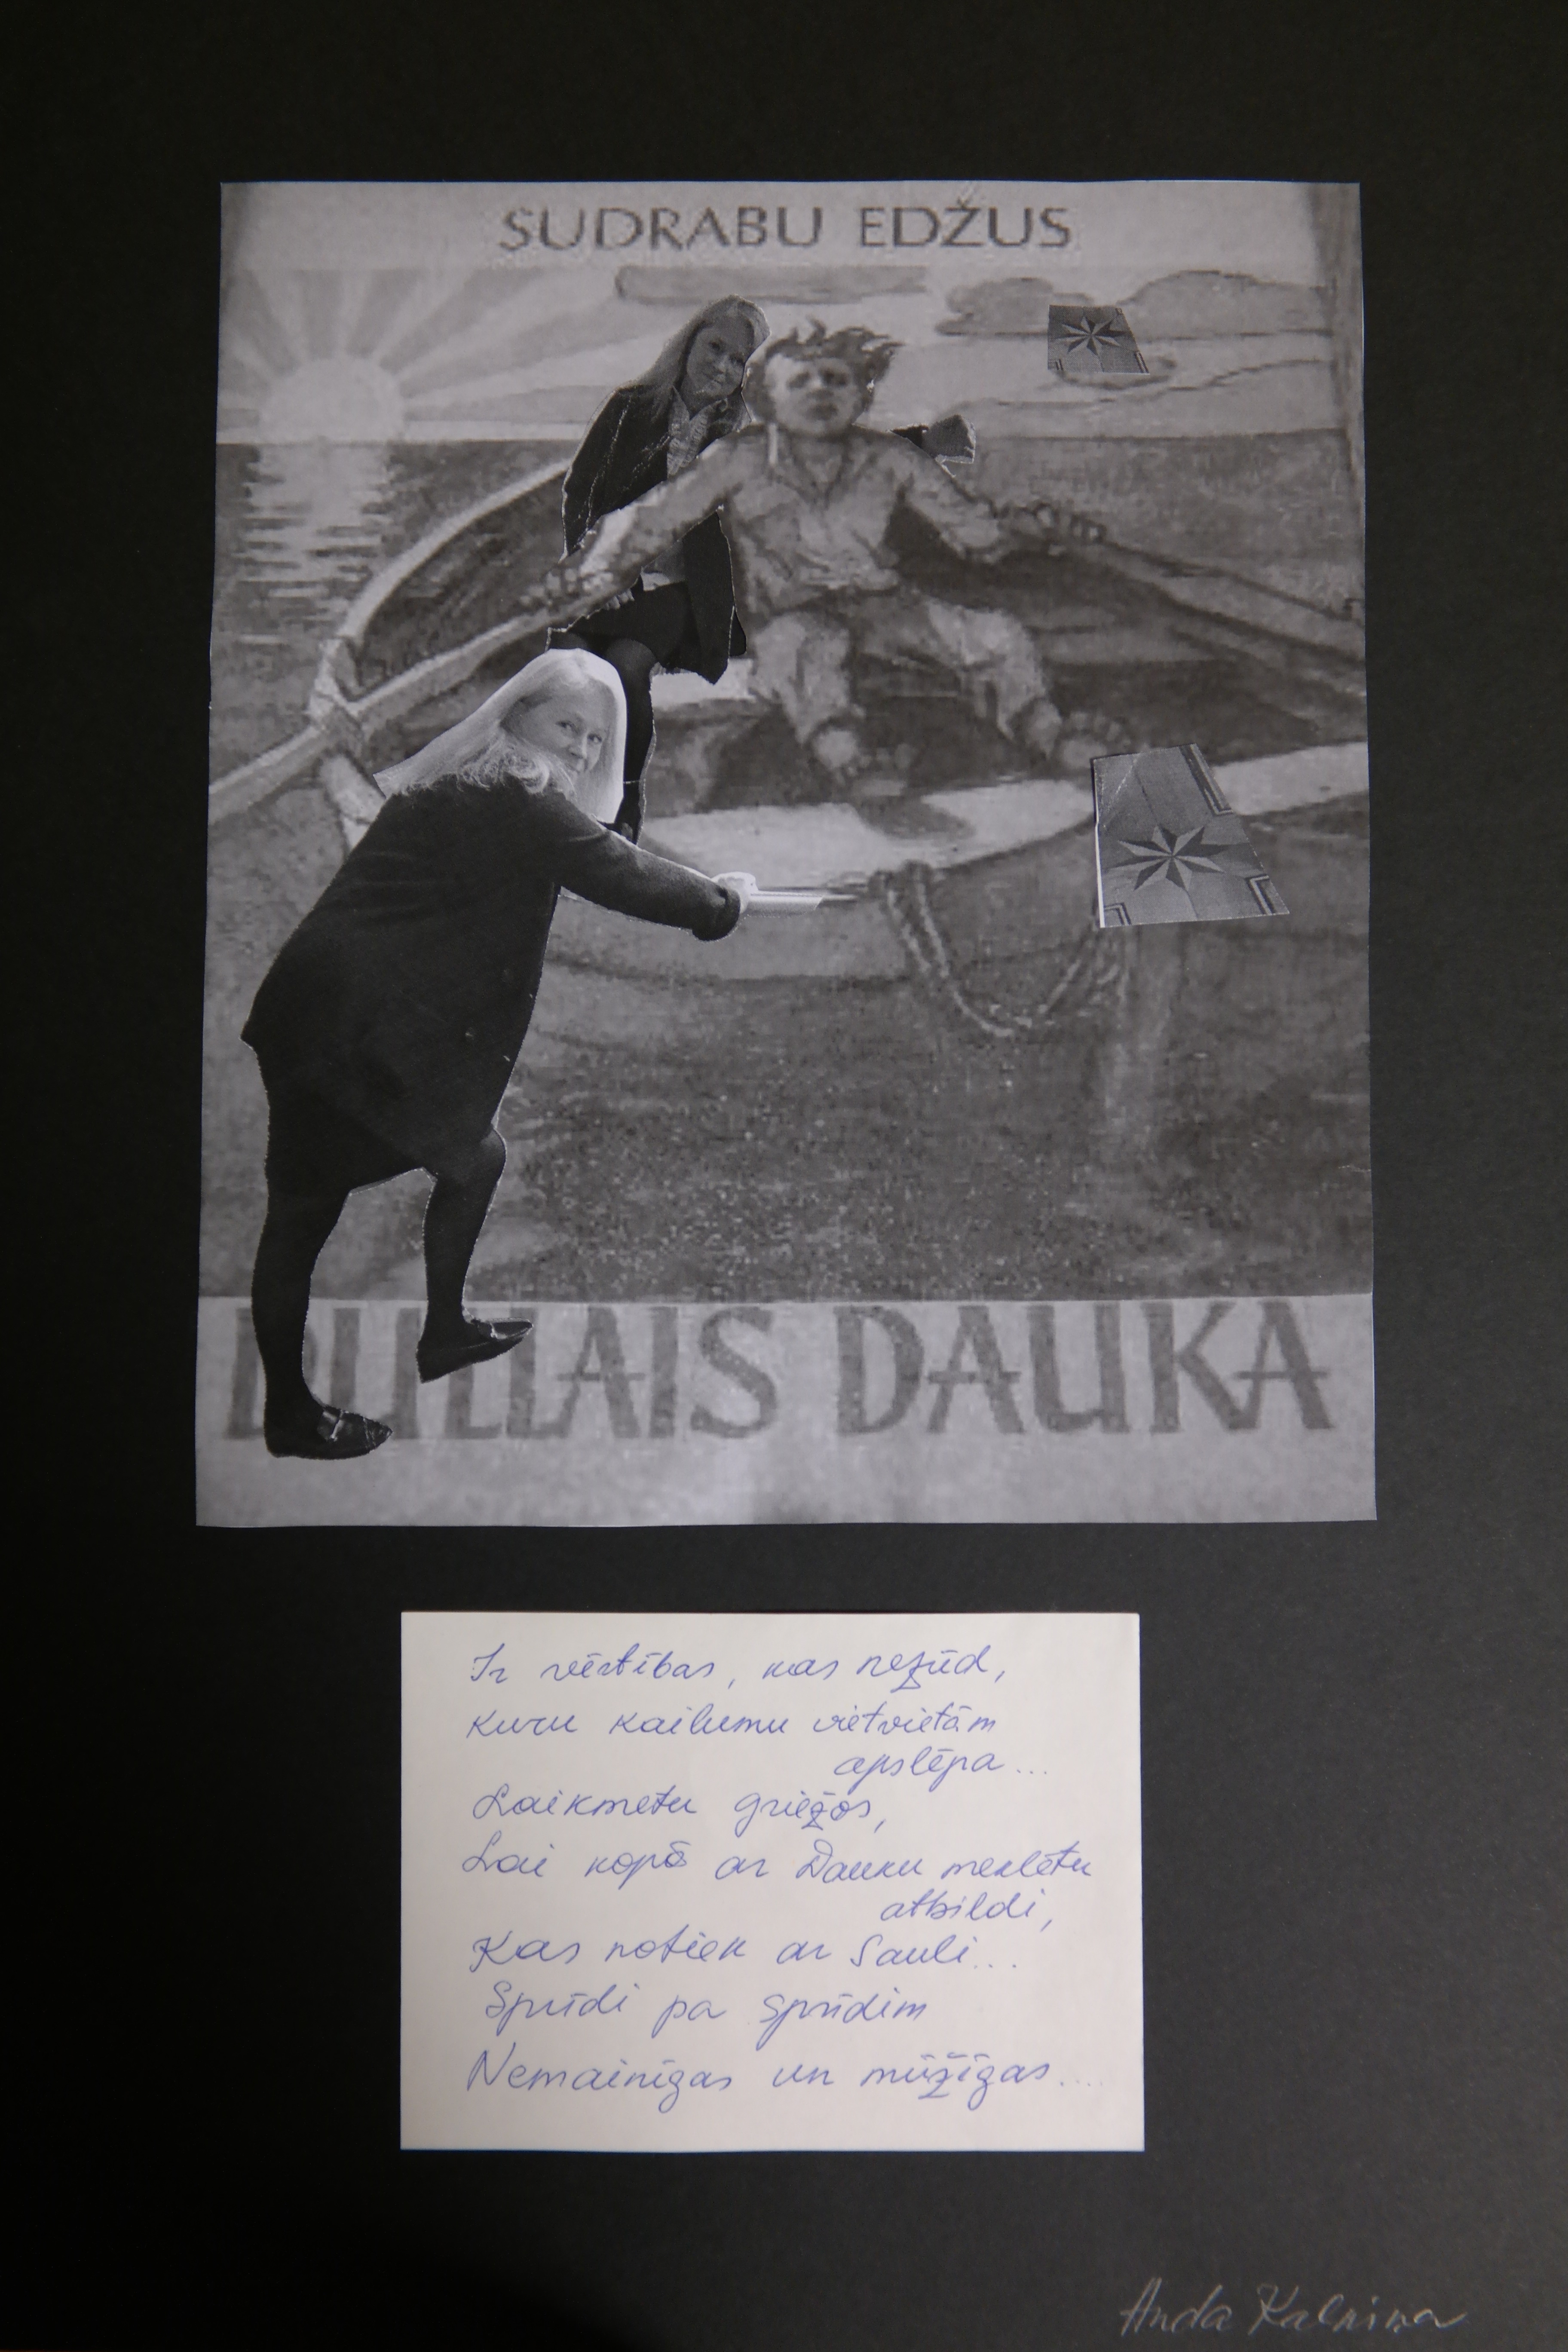 SUDRABU EDŽUS
DULLAIS DAUKA
Ir vērtības, kas nezūd,
Kuru kailumu vietvietām
apslēpa...
Laikmetu griežos,
Lai kopā ar Dauku meklētu
atbildi,
Kas notiek ar Sauli...
Sprīdi pa sprīdim
Nemainīgas un mūžīgas....
Anda Kalniņa